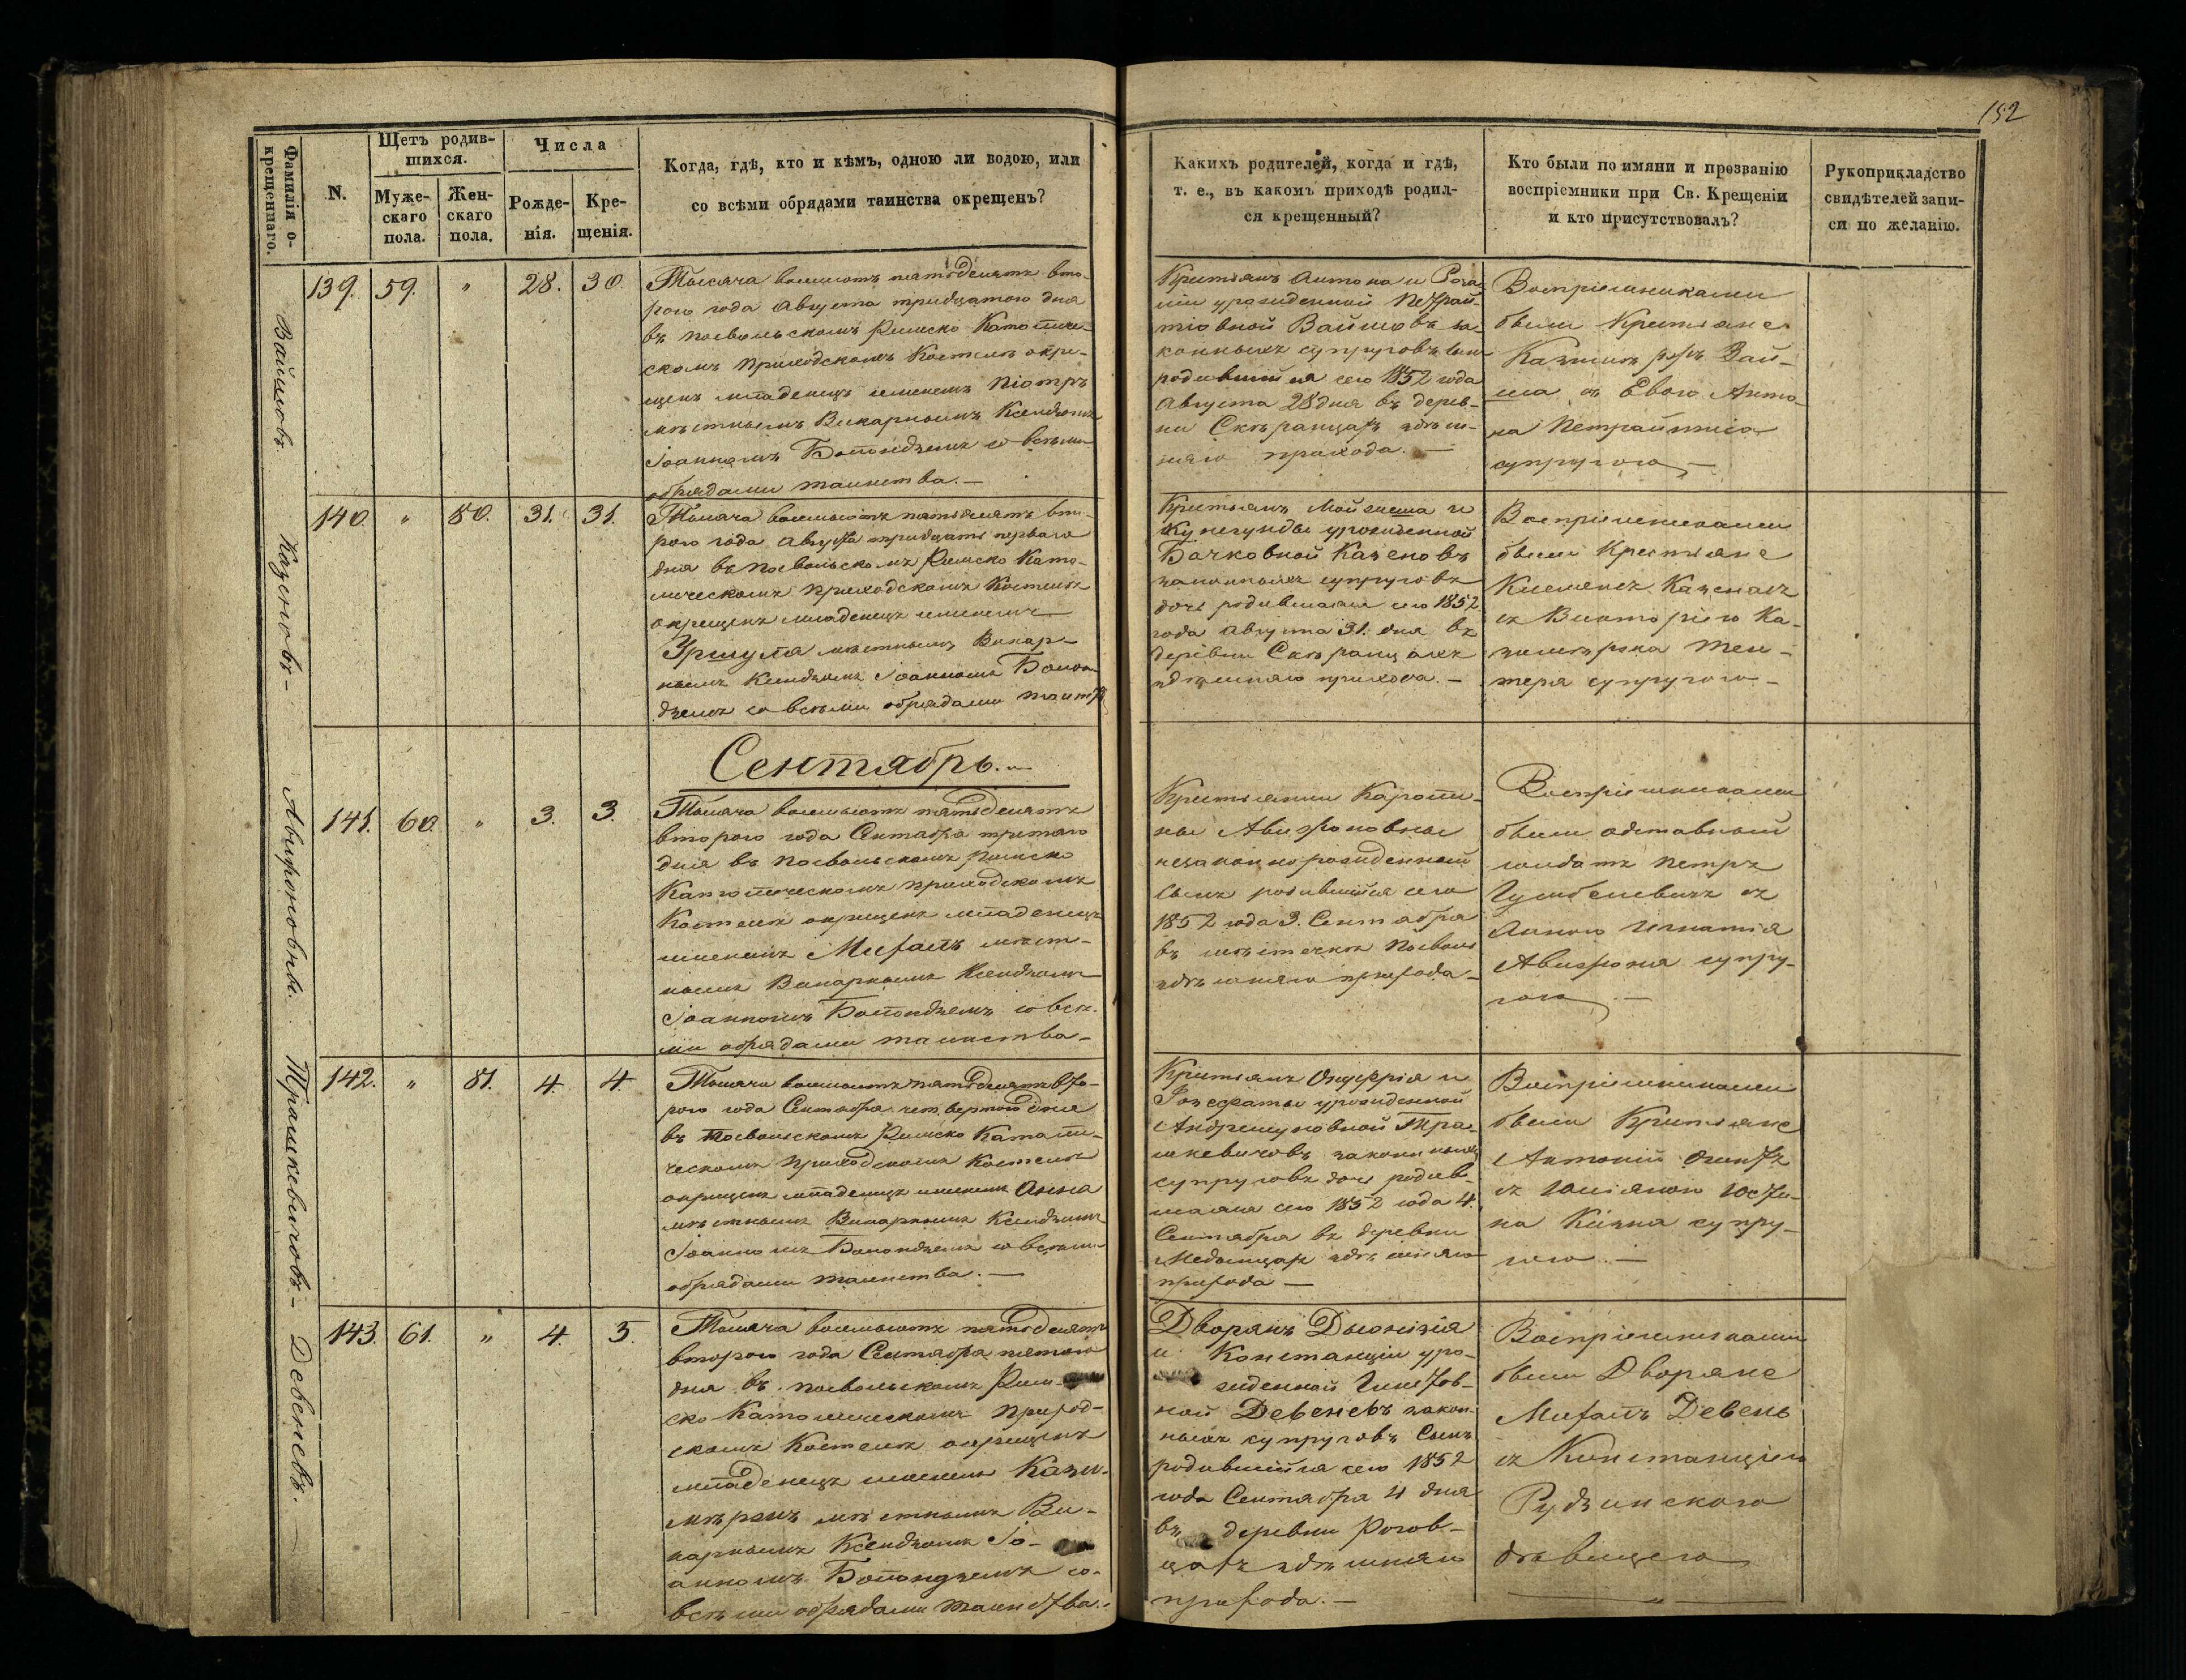 152
Фамилія о-
крещеннаго.
N.
Щетъ родив-
шихся.
Муже-
скаго
пола.
Жен-
скаго
пола.
Числа
Рожде-
нія.
Кре-
щенія.
Когда, гдѣ, кто и кѣмъ, одною ли водою, или
со всѣми обрядами таинства окрещенъ?
Какихъ родителей, когда и гдѣ,
т. е., въ какомъ приходѣ родил-
ся крещенный?
Кто были по имяни и прозванію
воспріемники при Св. Крещеніи
и кто присутствовалъ?
Рукоприкладство
свидѣтелей запи-
си по желанію.
Вайшовъ.
139. 59. " 28. 30.
Тысяча восемьсотъ пятьдесятъ вто-
рого года Августа тридцатого дня
въ Посвольскомъ Римско Католиче-
скомъ Приходскомъ Костелѣ окре-
щенъ младенецъ именемъ Піотръ
мѣстнымъ Викарнымъ Ксендзомъ
Іоанномъ со всѣми
обрядами таинства.—
Крестьянъ Антона и
урожденной Петрай-
тіовной Вайшовъ за-
конныхъ супруговъ сынъ
родившійся сего 1852 года
Августа 28 дня въ дерев-
ни здѣш-
няго прихода.—
Воспріемниками
были Крестьяне
Казимиръ Вай-
ша съ Евою Анто-
на
супругою—
Казеновъ—
140. " 80. 31. 31.
Тысяча восемьсотъ пятьдесятъ вто-
рого года Августа тридцать перваго
дня въ Посвольскомъ Римско Като-
лическомъ Приходскомъ Костелѣ
окрещенъ младенецъ именемъ
Уршуля мѣстнымъ Викар-
нымъ Ксендзомъ Іоанномъ
со всѣми обрядами
Крестьянъ Мойзеша и
Кунегунды урожденной
Бачковной Казеновъ
законныхъ супруговъ
дочь родившаяся сего 1852
года Августа 31. дня въ
деревни
здѣшняго прихода.—
Воспріемниками
были Крестьяне
съ Викторіею Ка-
супругою—
Сентябрь.
141. 60. " 3. 3.
Тысяча восемьсотъ пятьдесятъ
второго года Сентября третяго
дня въ Посвольскомъ Римско
Католическомъ Приходскомъ
Костелѣ окрещенъ младенецъ
именемъ Михаилъ мѣст-
нымъ Викарнымъ Ксендзомъ
Іоанномъ со всѣ-
ми обрядами таинства—
Крестьянки Кароли-
ны
незаконнорожденный
сынъ родившійся сего
1852 года 3. Сентября
въ мѣстечкѣ
здѣшняго прихода—
Воспріемниками
были отставный
солдатъ Петръ
съ
Анною Игнатія
супру-
гою.—
Трашкевичовъ—
142. " 81. 4. 4.
Тысяча восемьсотъ пятьдесятъ вто-
рого года Сентября четвертого дня
въ Посвольскомъ Римско Католи-
ческомъ Приходскомъ Костелѣ
окрещенъ младенецъ именемъ Анна
мѣстнымъ Викарнымъ Ксендзомъ
Іоанномъ со всѣми
обрядами таинства.—
Крестьянъ Онуфрія и
Іозефаты урожденной
Тра-
шкевичовъ законныхъ
супруговъ дочь родив-
шаяся сего 1852 года 4.
Сентября въ деревни
здѣшняго
прихода—
Воспріемниками
были Крестьяне
Антоній
съ
на супру-
гою.—
Девеневъ.—
143. 61. " 4. 5.
Тысяча восемьсотъ пятьдесятъ
второго года Сентября пятого
дня въ Посвольскомъ Рим-
ско Католическомъ Приход-
скомъ Костелѣ окрещенъ
младенецъ именемъ Кази-
мѣромъ мѣстнымъ Ви-
карнымъ Ксендзомъ Іо-
анномъ со
всѣми обрядами таинства.
Дворянъ Дыонізія
и Констанціи уро-
жденной
ной Девеневъ закон-
ныхъ супруговъ Сынъ
родившійся сего 1852
года Сентября 4 дня
въ деревни
здѣшняго
прихода.—
Воспріемниками
были Дворяне
Михаилъ Девень
съ Констанціею
Рудзинскою
дѣвицею